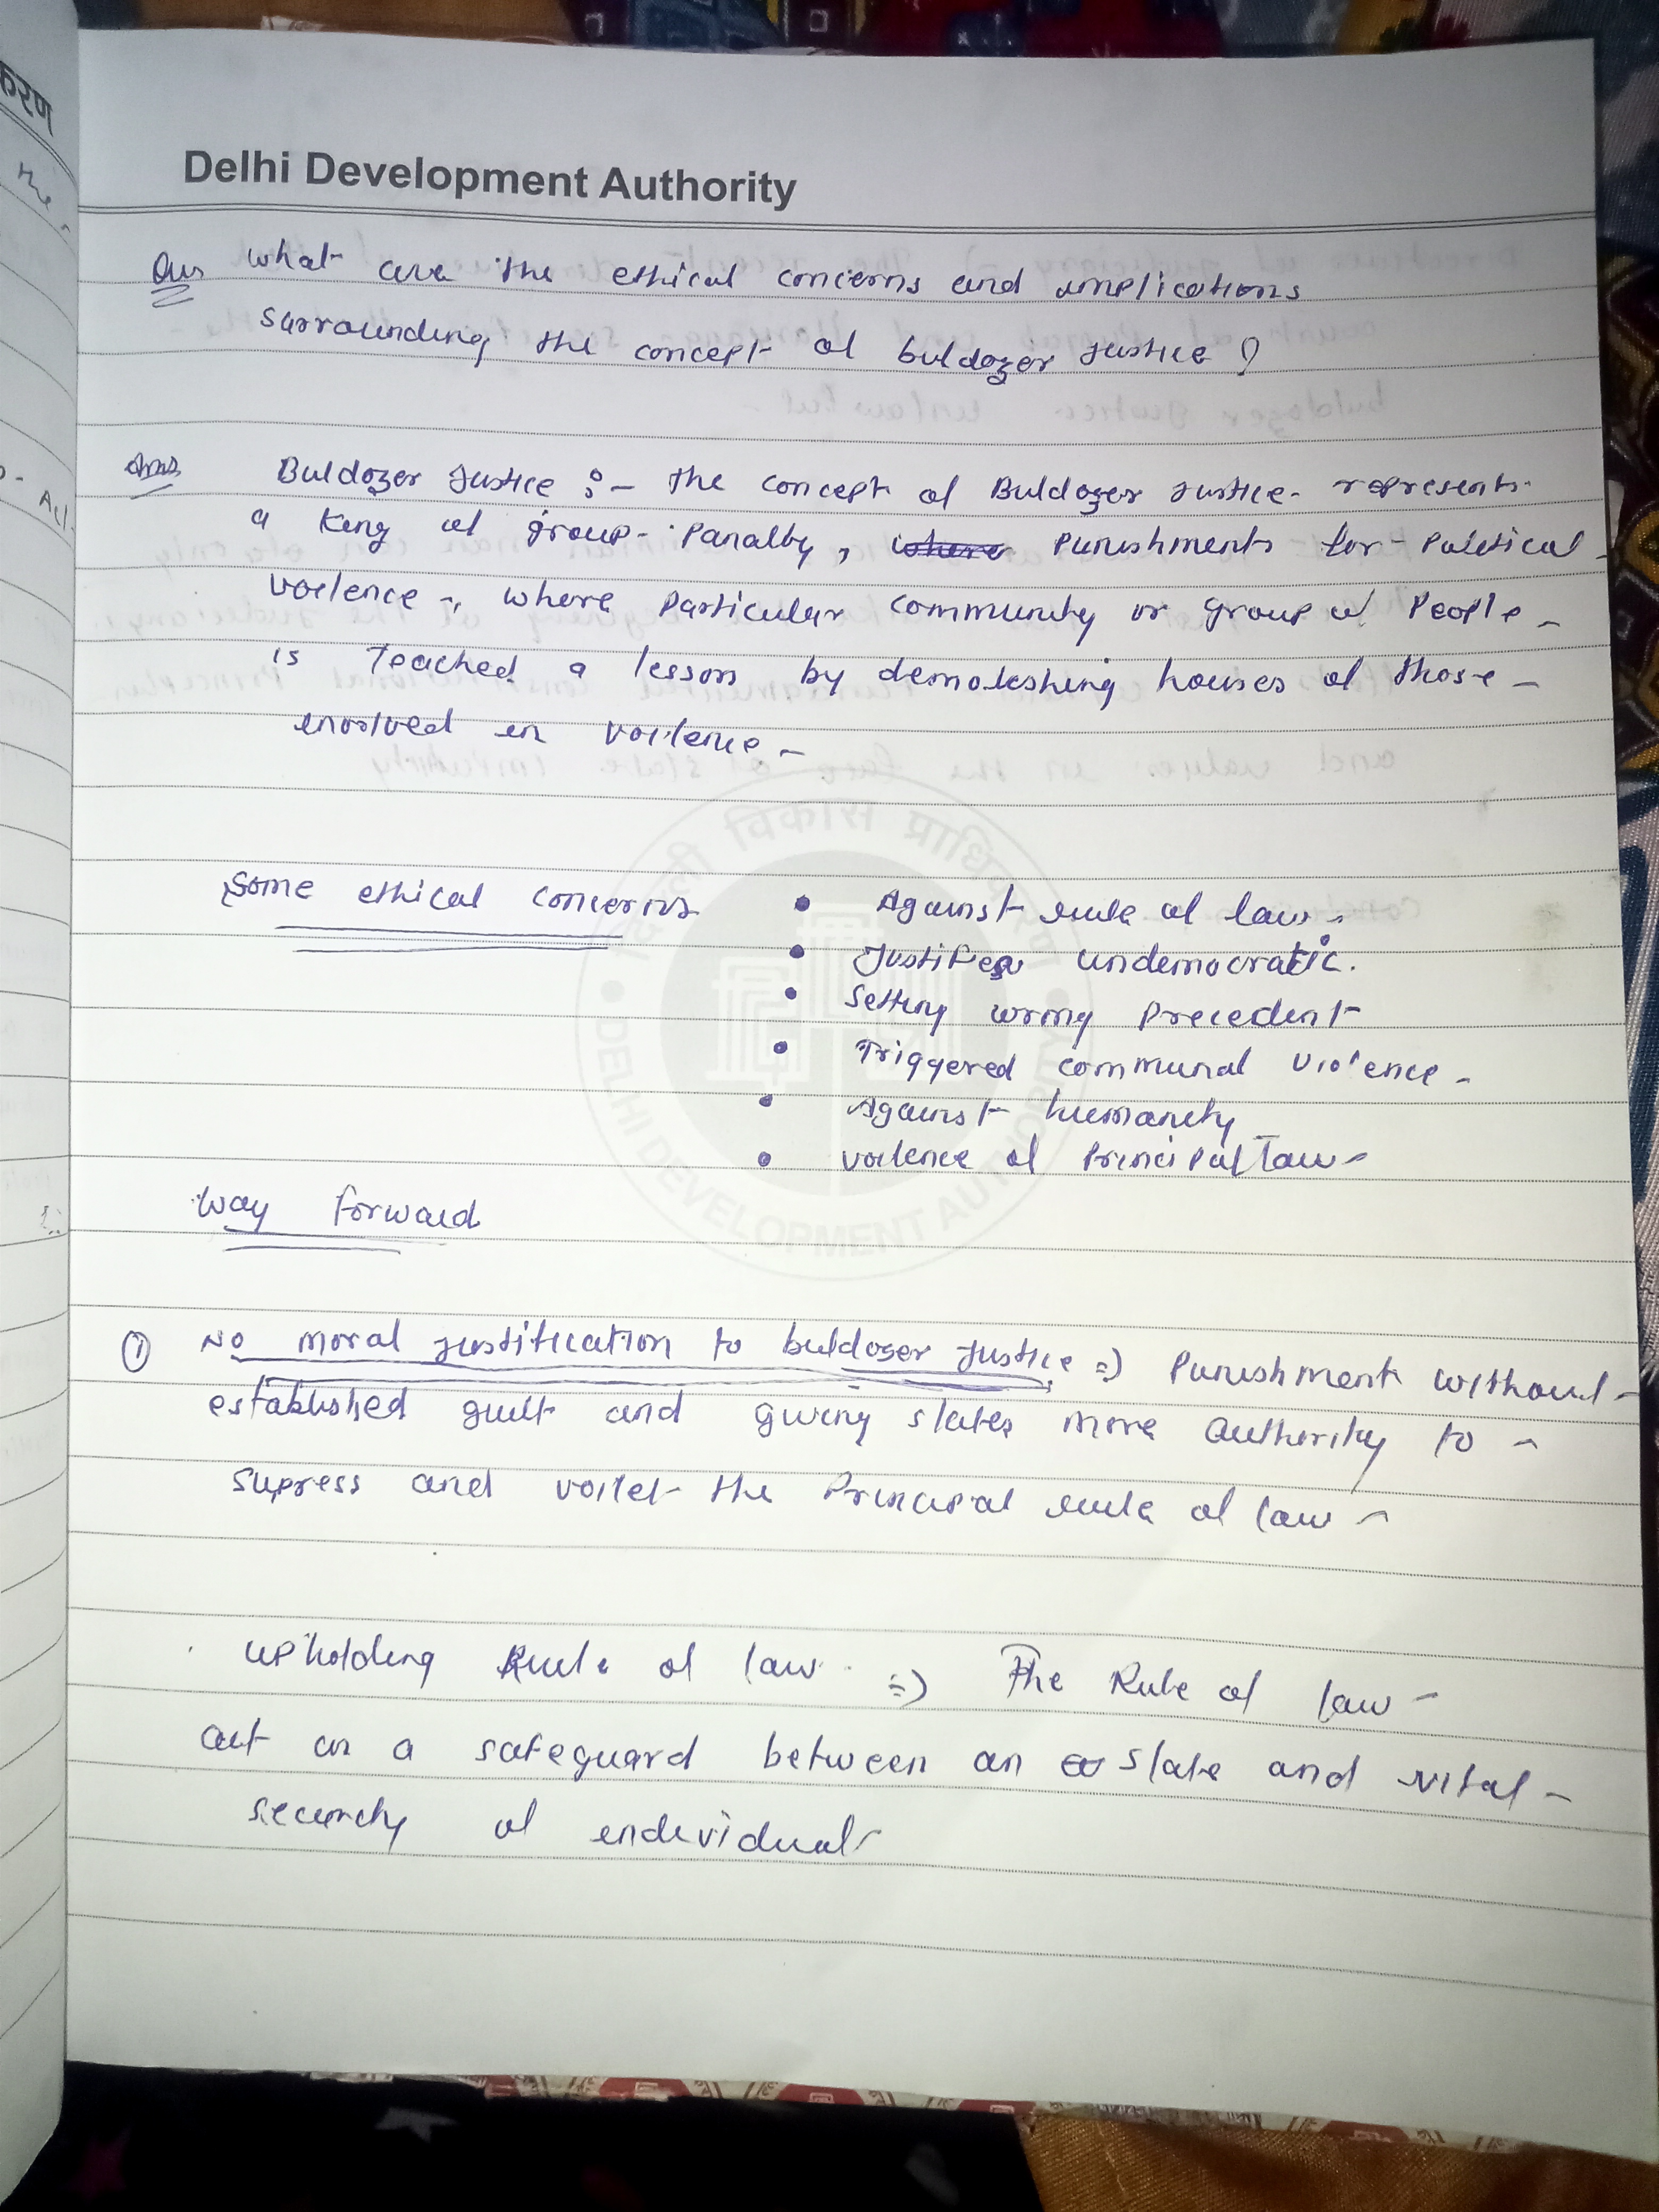 करण
the
Delhi Development Authority
Qus what are the ethical concerns and implications
surrounding the concept of buldozer justice ?
Ans Buldozer Justice :- The concept of Buldozer Justice represents
a King of group Panalty, where Punishments for Political
voilence, where Particular community or group of People
is Teached a lesson by demolishing houses of those
involved in voilence
Some ethical concerns
• Against rule of law.
• Justifes undemocratic.
• Setting wrong Precedent
• Triggered communal violence.
• Against humanity
• voilence of Principal law
दिल्ली विकास प्राधिकरण
DELHI DEVELOPMENT AUTHORITY
Way forward
① No moral justification to buldozer Justice => Punishment without
established guilt and giving states more authority to
supress and voilet the Principal rule of law
upholding Rule of law => The Rule of law
act as a safeguard between an state and vital
security of individual